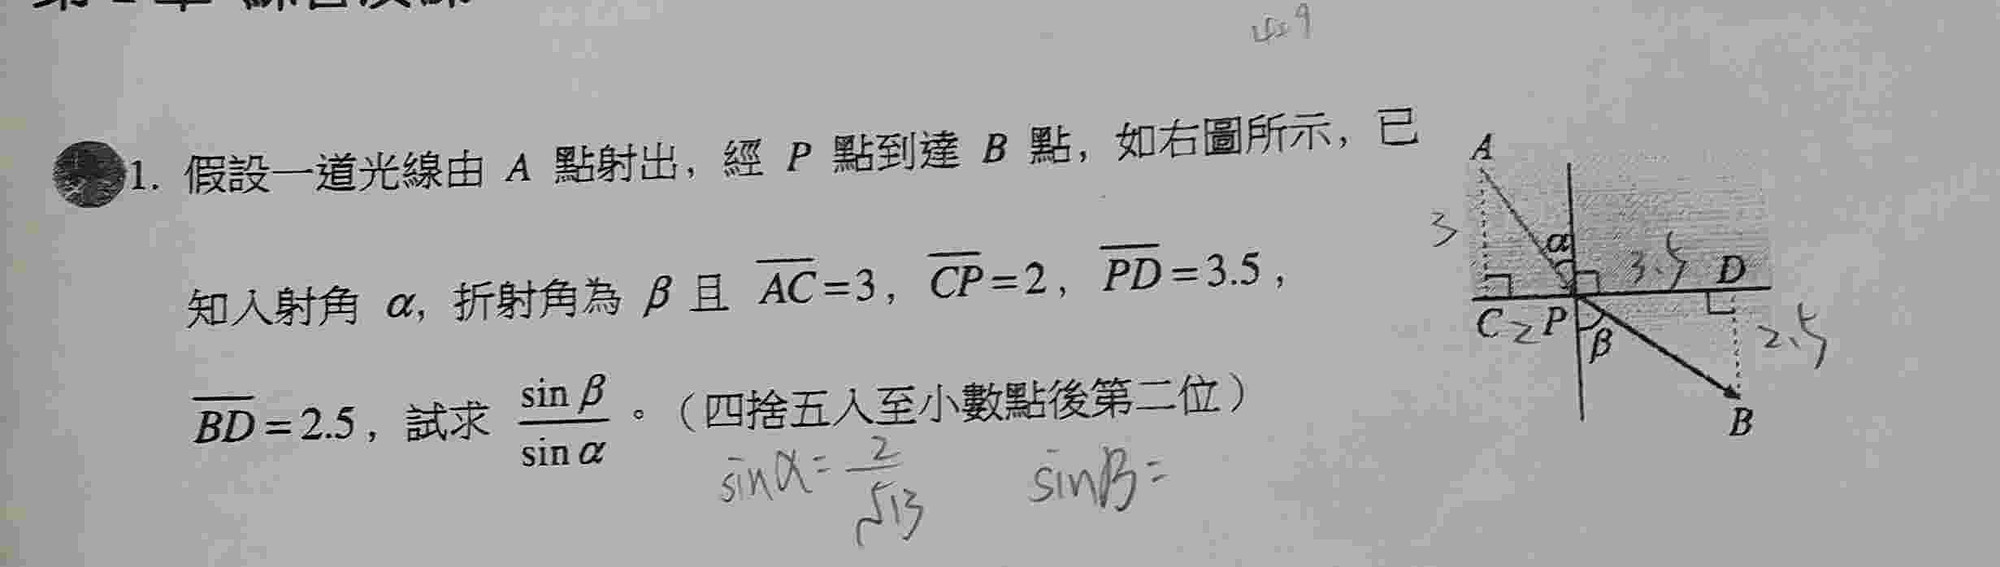 1. 假設一道光線由 A 點射出，經 P 點到達 B 點，如右圖所示，已
知入射角 α, 折射角為 β 且 AC=3，CP=2，PD=3.5，
BD=2.5，試求 sin β / sin α。（四捨五入至小數點後第二位）
sinα= 2/√13 sinβ=
A
3
α
3.5 D
C 2 P
β
2.5
B